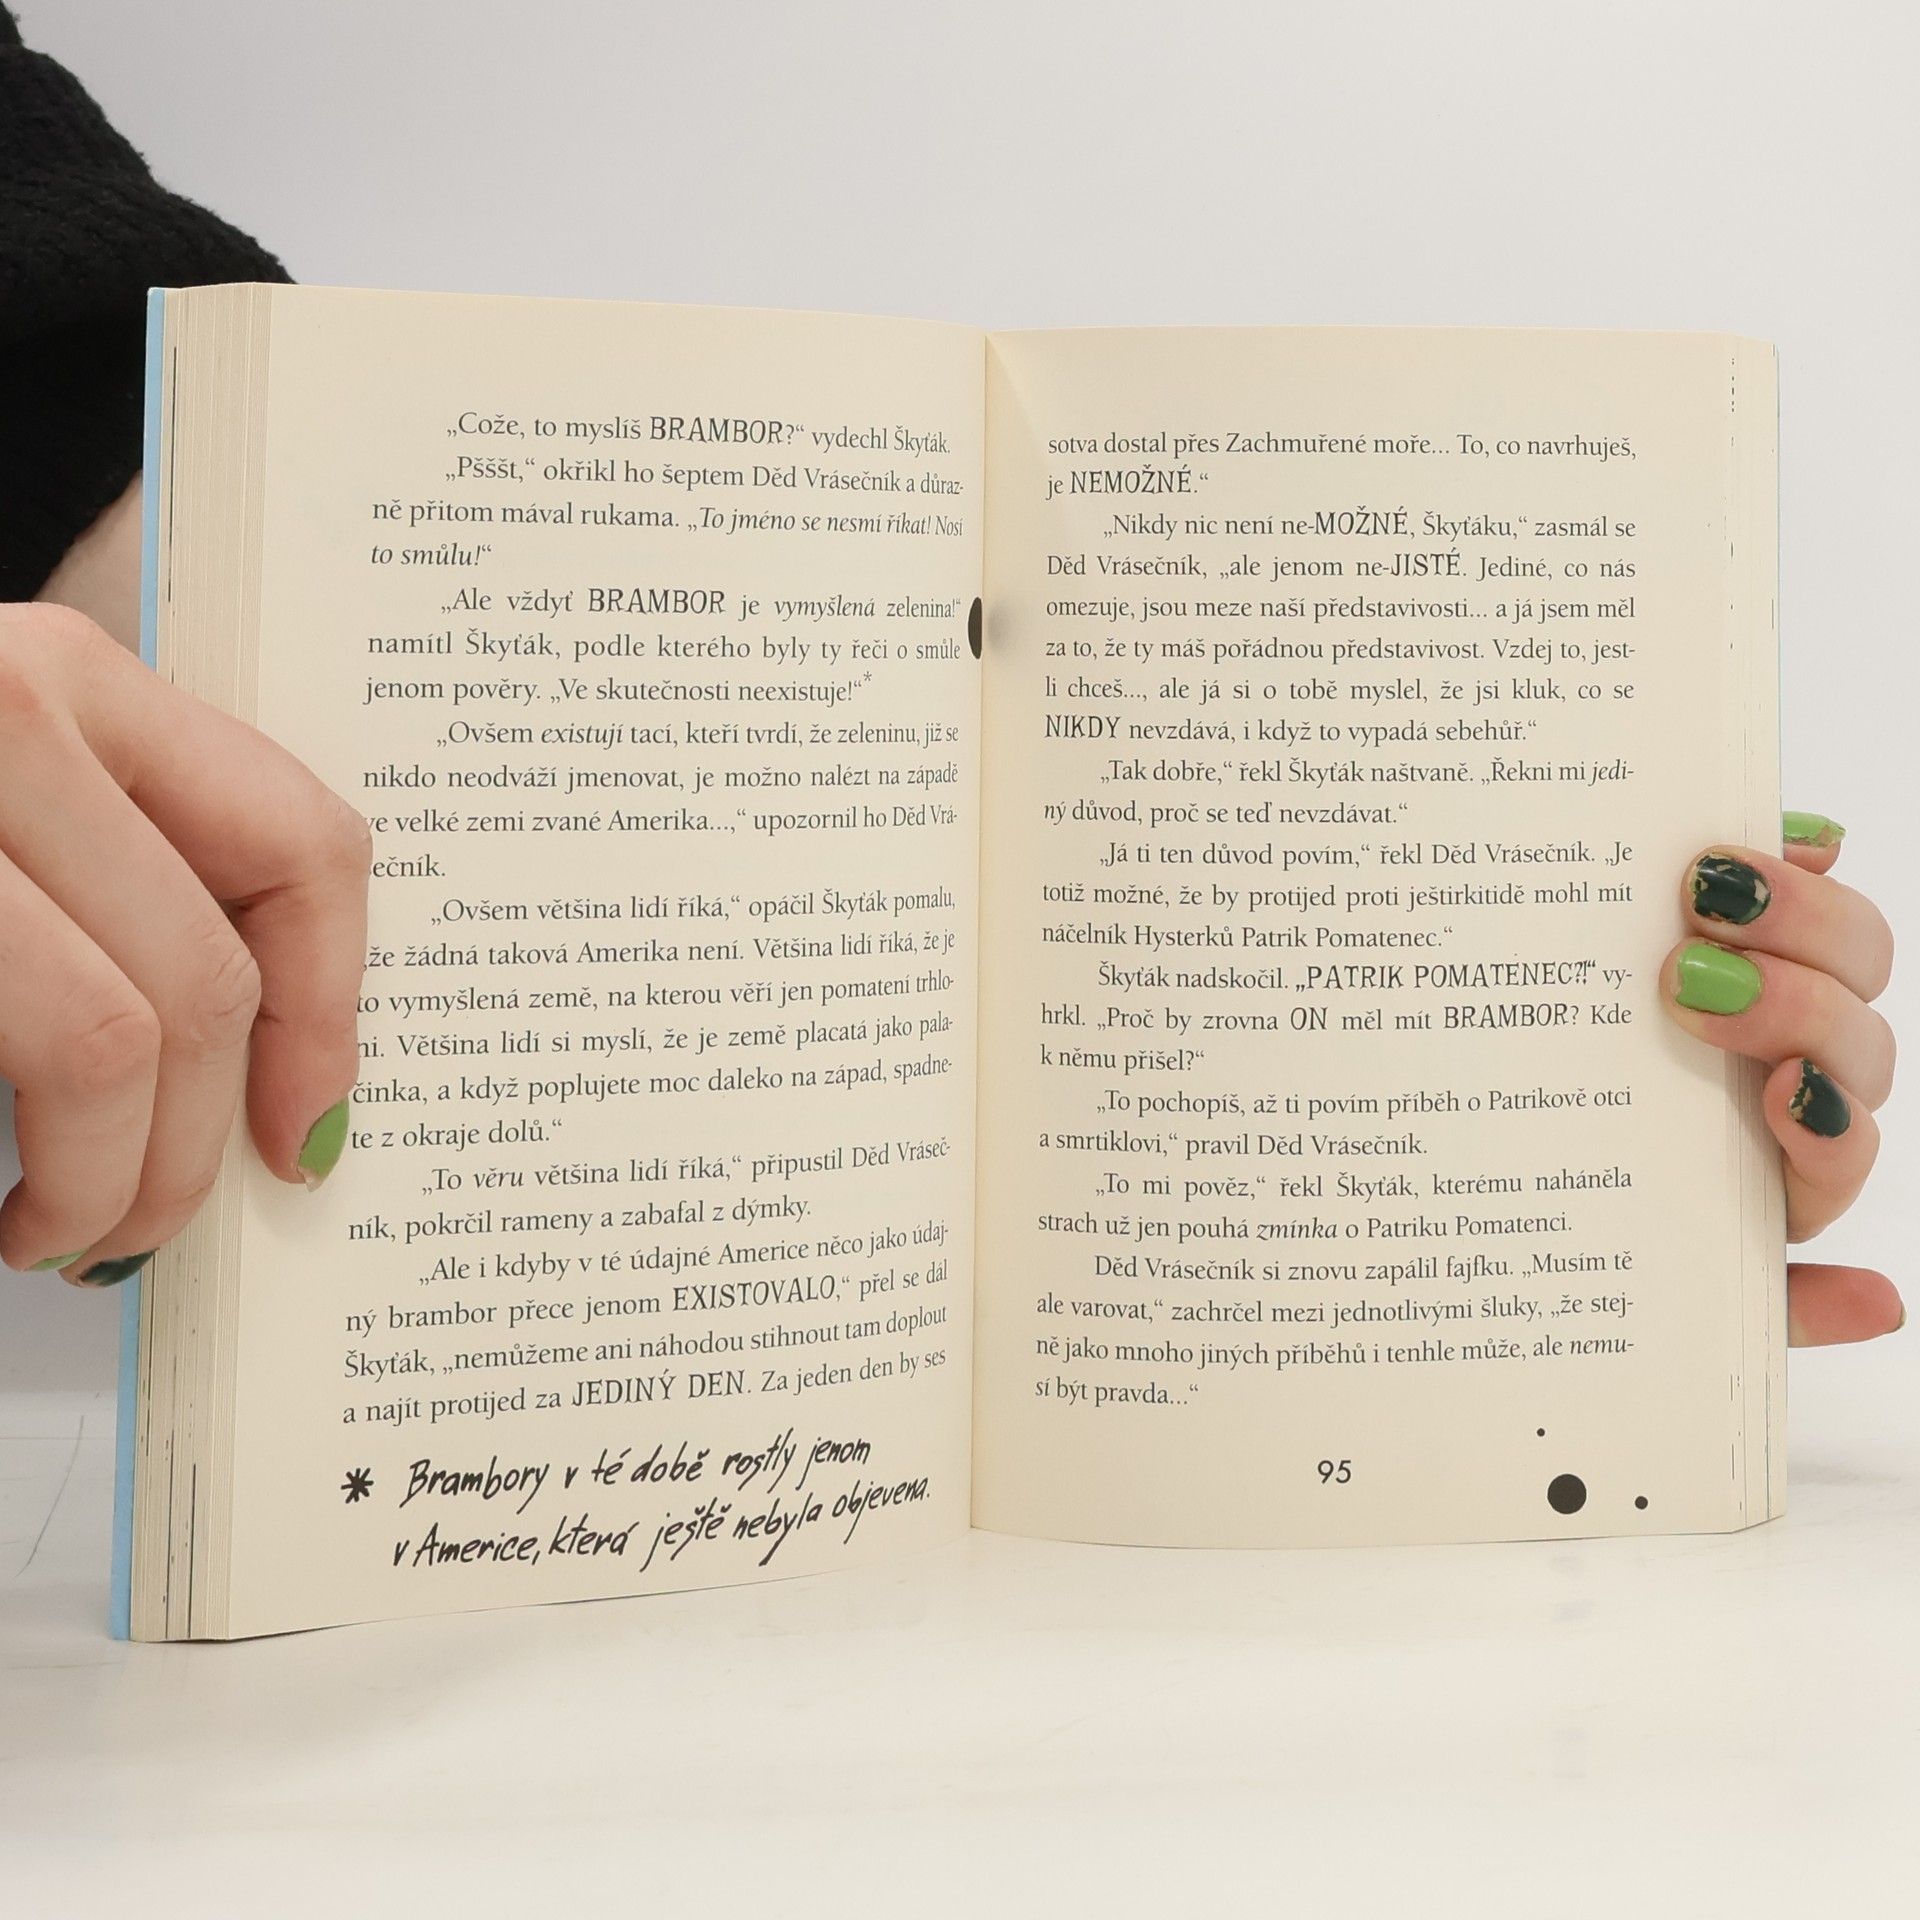 „Cože, to myslíš BRAMBOR?“ vydechl Škyťák.
„Pšššt,“ okřikl ho šeptem Děd Vrásečník a důraz-
ně přitom mával rukama. „To jméno se nesmí říkat! Nosí
to smůlu!“
„Ale vždyť BRAMBOR je vymyšlená zelenina!“
namítl Škyťák, podle kterého byly ty řeči o smůle
jenom pověry. „Ve skutečnosti neexistuje!“*
„Ovšem existují tací, kteří tvrdí, že zeleninu, již se
nikdo neodváží jmenovat, je možno nalézt na západě
ve velké zemi zvané Amerika...,“ upozornil ho Děd Vrá-
sečník.
„Ovšem většina lidí říká,“ opáčil Škyťák pomalu,
„že žádná taková Amerika není. Většina lidí říká, že je
to vymyšlená země, na kterou věří jen pomatení trhlo-
ni. Většina lidí si myslí, že je země placatá jako pala-
činka, a když poplujete moc daleko na západ, spadne-
te z okraje dolů.“
„To věru většina lidí říká,“ připustil Děd Vráseč-
ník, pokrčil rameny a zabafal z dýmky.
„Ale i kdyby v té údajné Americe něco jako údaj-
ný brambor přece jenom EXISTOVALO,“ přel se dál
Škyťák, „nemůžeme ani náhodou stihnout tam doplout
a najít protijed za JEDINÝ DEN. Za jeden den by ses
* Brambory v té době rostly jenom
v Americe, která ještě nebyla objevena.
sotva dostal přes Zachmuřené moře... To, co navrhuješ,
je NEMOŽNÉ.“
„Nikdy nic není ne-MOŽNÉ, Škyťáku,“ zasmál se
Děd Vrásečník, „ale jenom ne-JISTÉ. Jediné, co nás
omezuje, jsou meze naší představivosti... a já jsem měl
za to, že ty máš pořádnou představivost. Vzdej to, jest-
li chceš..., ale já si o tobě myslel, že jsi kluk, co se
NIKDY nevzdává, i když to vypadá sebehůř.“
„Tak dobře,“ řekl Škyťák naštvaně. „Řekni mi jedi-
ný důvod, proč se teď nevzdávat.“
„Já ti ten důvod povím,“ řekl Děd Vrásečník. „Je
totiž možné, že by protijed proti ještirkitidě mohl mít
náčelník Hysterků Patrik Pomatenec.“
Škyťák nadskočil. „PATRIK POMATENEC?!“ vy-
hrkl. „Proč by zrovna ON měl mít BRAMBOR? Kde
k němu přišel?“
„To pochopíš, až ti povím příběh o Patrikově otci
a smrtiklovi,“ pravil Děd Vrásečník.
„To mi pověz,“ řekl Škyťák, kterému naháněla
strach už jen pouhá zmínka o Patriku Pomatenci.
Děd Vrásečník si znovu zapálil fajfku. „Musím tě
ale varovat,“ zachrčel mezi jednotlivými šluky, „že stej-
ně jako mnoho jiných příběhů i tenhle může, ale nemu-
sí být pravda...“
95